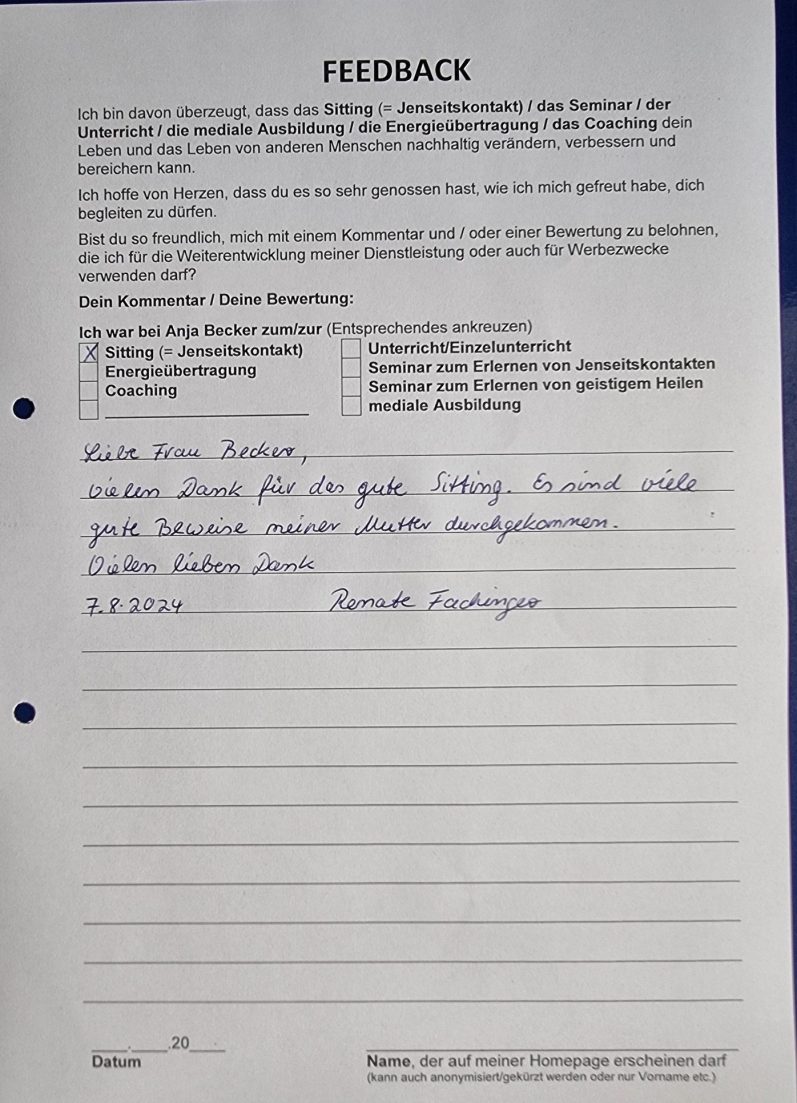 FEEDBACK
Ich bin davon überzeugt, dass das Sitting (= Jenseitskontakt) / das Seminar / der
Unterricht / die mediale Ausbildung / die Energieübertragung / das Coaching dein
Leben und das Leben von anderen Menschen nachhaltig verändern, verbessern und
bereichern kann.
Ich hoffe von Herzen, dass du es so sehr genossen hast, wie ich mich gefreut habe, dich
begleiten zu dürfen.
Bist du so freundlich, mich mit einem Kommentar und / oder einer Bewertung zu belohnen,
die ich für die Weiterentwicklung meiner Dienstleistung oder auch für Werbezwecke
verwenden darf?
Dein Kommentar / Deine Bewertung:
Ich war bei Anja Becker zum/zur (Entsprechendes ankreuzen)
X Sitting (= Jenseitskontakt)
Energieübertragung
Coaching
Unterricht/Einzelunterricht
Seminar zum Erlernen von Jenseitskontakten
Seminar zum Erlernen von geistigem Heilen
mediale Ausbildung
Liebe Frau Becker,
vielen Dank für das gute Sitting. Es sind viele
gute Beweise meiner Mutter durchgekommen.
Vielen lieben Dank
7.8.2024 Renate Fachinger
____.____.20____
Datum
Name, der auf meiner Homepage erscheinen darf
(kann auch anonymisiert/gekürzt werden oder nur Vorname etc.)